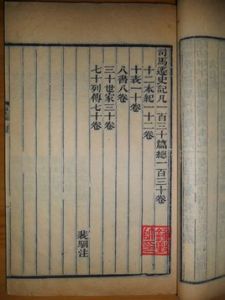 司馬遷史記凡一百三十篇總一百三十卷
十二本紀一十二卷
十表一十卷
八書八卷
三十世家三十卷
七十列傳七十卷
裴駰注